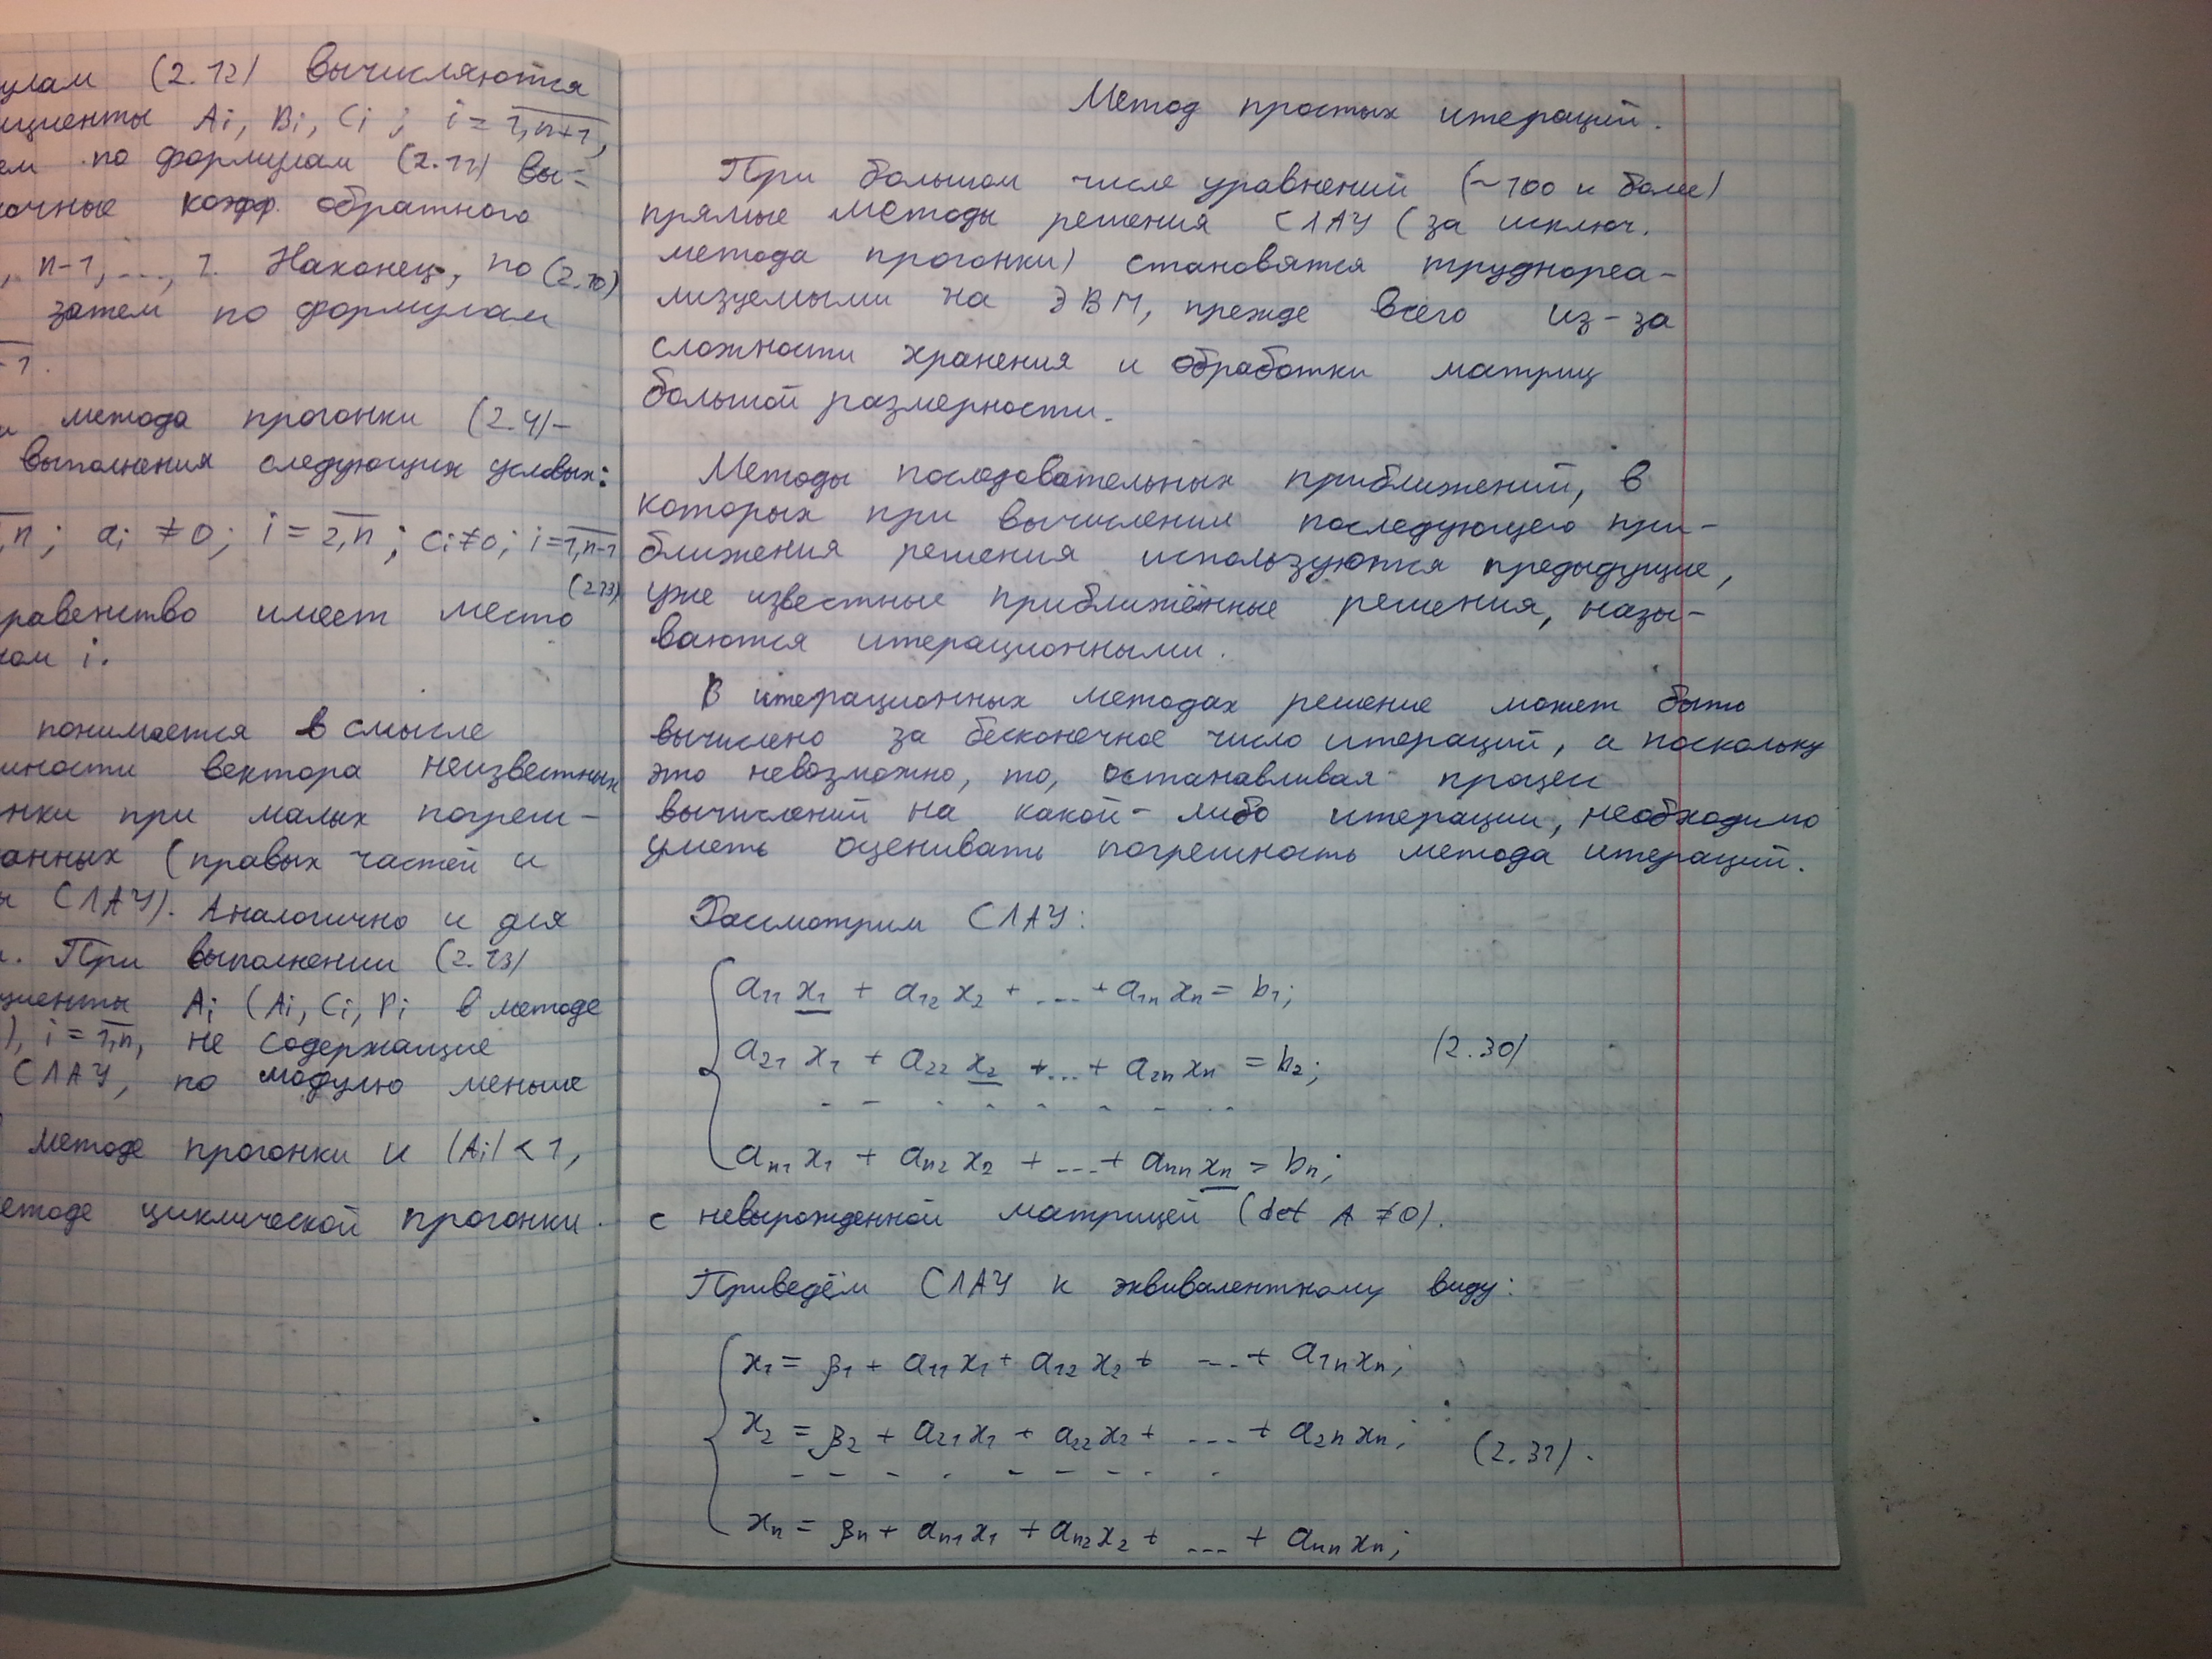 (2.12) вычисляются
Ai, Bi, Ci; i = 1,n+1,
по формулам (2.11) вы-
коэфф. обратного
, n-1, ..., 1. Наконец, по (2.10)
затем по формулам
-1.
метода прогонки (2.4)-
выполнения следующих условых:
,n; ai ≠ 0; i = 2,n; ci ≠ 0; i = 1,n-1
(2.13)
равенство имеет место
i.
понимается в смысле
вектора неизвестных
при малых погреш-
(правых частей и
СЛАУ). Аналогично и для
. При выполнении (2.13)
Ai (Ai, Ci, Pi в методе
), i = 1,n, не содержащие
СЛАУ, по модулю меньше
методе прогонки и |Ai| < 1,
циклической прогонки.
Метод простых итераций.
При большом числе уравнений (~100 и более)
прямые методы решения СЛАУ (за исключ.
метода прогонки) становятся труднореа-
лизуемыми на ЭВМ, прежде всего из-за
сложности хранения и обработки матриц
большой размерности.
Методы последовательных приближений, в
которых при вычислении последующего при-
ближения решения используются предыдущие,
уже известные приближённые решения, назы-
ваются итерационными.
В итерационных методах решение может быть
вычислено за бесконечное число итераций, а поскольку
это невозможно, то, останавливая процесс
вычислений на какой-либо итерации, необходимо
уметь оценивать погрешность метода итераций.
Рассмотрим СЛАУ:
a11 x1 + a12 x2 + ... + a1n xn = b1;
a21 x1 + a22 x2 + ... + a2n xn = b2; (2.30)
- - - - - - - - -
an1 x1 + an2 x2 + ... + ann xn = bn;
с невырожденной матрицей (det A ≠ 0).
Приведём СЛАУ к эквивалентному виду:
x1 = β1 + a11 x1 + a12 x2 + ... + a1n xn;
x2 = β2 + a21 x1 + a22 x2 + ... + a2n xn; (2.31).
- - - - - - - - -
xn = βn + an1 x1 + an2 x2 + ... + ann xn;